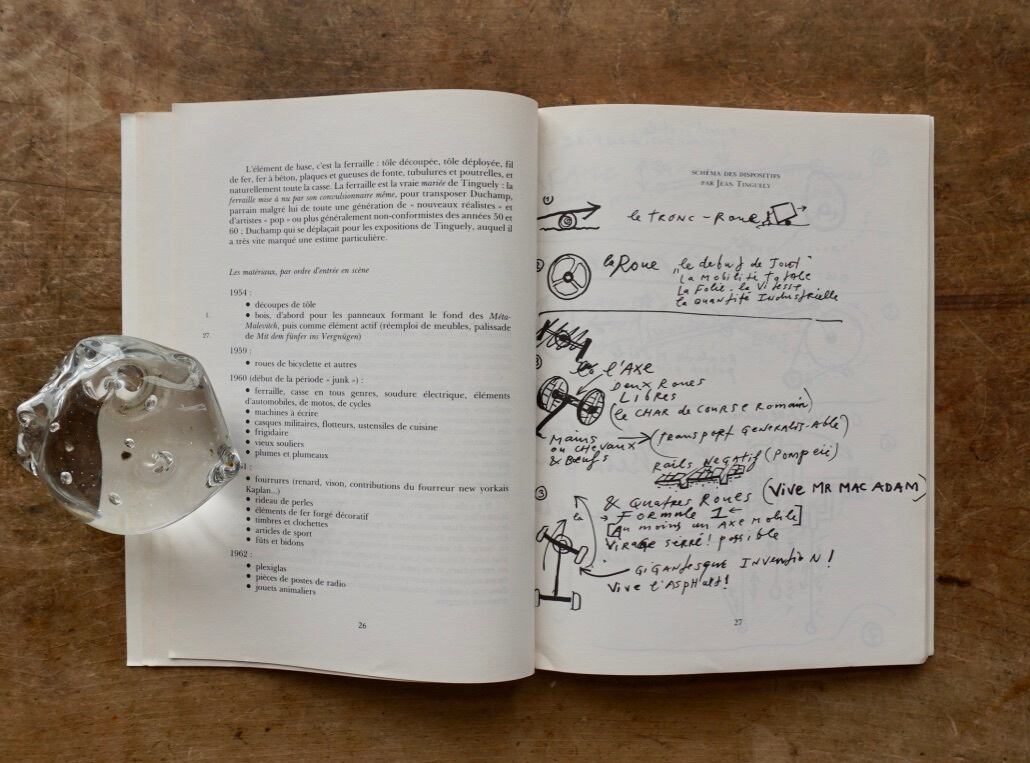 L'élément de base, c'est la ferraille : tôle découpée, tôle déployée, fil
de fer, fer à béton, plaques et gueuses de fonte, tubulures et poutrelles, et
naturellement toute la casse. La ferraille est la vraie mariée de Tinguely : la
ferraille mise à nu par son convulsionnaire même, pour transposer Duchamp,
parrain malgré lui de toute une génération de « nouveaux réalistes » et
d'artistes « pop » ou plus généralement non-conformistes des années 50 et
60 ; Duchamp qui se déplaçait pour les expositions de Tinguely, auquel il
a très vite marqué une estime particulière.
Les matériaux, par ordre d'entrée en scène
1954 :
• découpes de tôle
1. • bois, d'abord pour les panneaux formant le fond des Méta-
Malevitch, puis comme élément actif (réemploi de meubles, palissade
27. de Mit dem fünfer ins Vergnügen)
1959 :
• roues de bicyclette et autres
1960 (début de la période « junk ») :
• ferraille, casse en tous genres, soudure électrique, éléments
d'automobiles, de motos, de cycles
• machines à écrire
• casques militaires, flotteurs, ustensiles de cuisine
• frigidaire
• vieux souliers
• plumes et plumeaux
61 :
• fourrures (renard, vison, contributions du fourreur new yorkais
Kaplan...)
• rideau de perles
• éléments de fer forgé décoratif
• timbres et clochettes
• articles de sport
• fûts et bidons
1962 :
• plexiglas
• pièces de postes de radio
• jouets animaliers
26
SCHÉMA DES DISPOSITIFS
PAR JEAN TINGUELY
1
le TRONC - Roue
2
la Roue "le debut de Tout"
la Mobilité Totale
la Folie - la Vitesse
la Quantité Industrielle
3
l'AXE
Deux Roues
LIBRES
(le CHAR de COURSE Romain)
Mains (Transport GeneralisAble)
ou CHEVAUX
& Bœufs
Rails NEGATIF (Pompeii)
3
& Quatres Roues (Vive MR MAC ADAM)
la → FORMULE 1 ←
[Au moins un AXE Mobile]
Virage serré! possible
GIGANTESQUE INVENTION!
Vive l'ASPHalt!
27